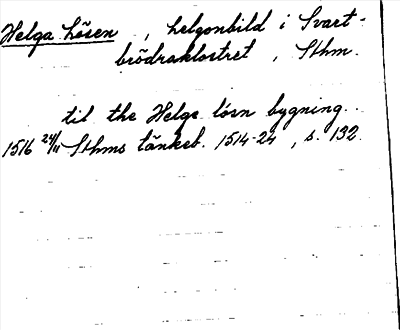 Helga lösen, helgonbild i Svart-
brödraklostret, Sthm.
til the Helge lösn bygning.
1516 24/11 Sthms tänkeb. 1514-24, s. 132.